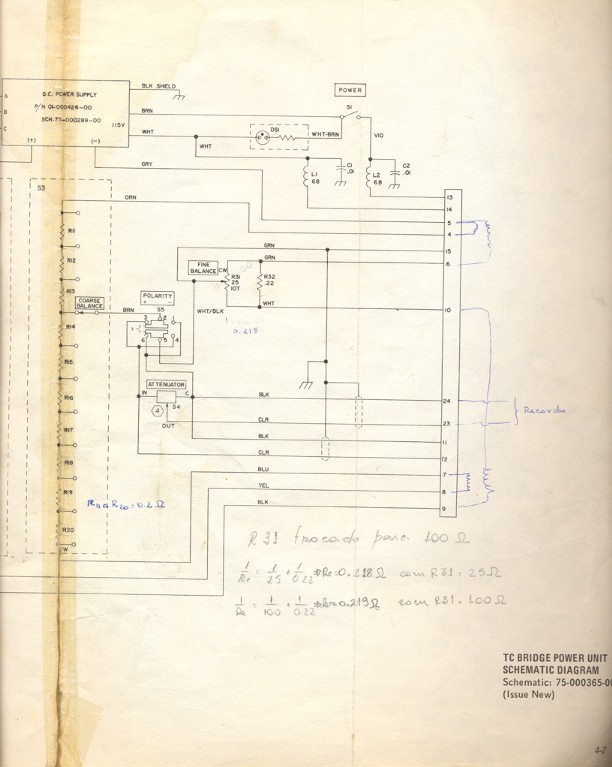 BLK SHIELD
POWER
A
D.C. POWER SUPPLY
P/N 01-000426-00
B
SCH. 75-000289-00
C
115V
(+)
(-)
BRN
S1
WHT
DS1
WHT-BRN
VIO
WHT
GRY
L1
68
C1
.01
L2
68
C2
.01
S3
ORN
13
14
5
4
R11
GRN
15
R12
GRN
6
FINE
BALANCE
CW
R31
25
10T
R32
.22
R13
COARSE
BALANCE
POLARITY
+ -
WHT
10
BRN
S5
3 2 1
6 5 4
WHT/BLK
0.218
R14
R15
ATTENUATOR
IN
C
S4
4
OUT
R16
BLK
24
Recorder
CLR
23
R17
BLK
11
CLR
12
R18
BLU
7
YEL
8
R19
BLK
9
R11 a R20 = 0.2 Ω
R20
W
R31 trocado para 100 Ω
1/Re = 1/25 + 1/0.22 ⇒ Re = 0.218 Ω com R31 = 25 Ω
1/Re = 1/100 + 1/0.22 ⇒ Re = 0.219 Ω com R31 = 100 Ω
TC BRIDGE POWER UNIT
SCHEMATIC DIAGRAM
Schematic: 75-000365-00
(Issue New)
4-2